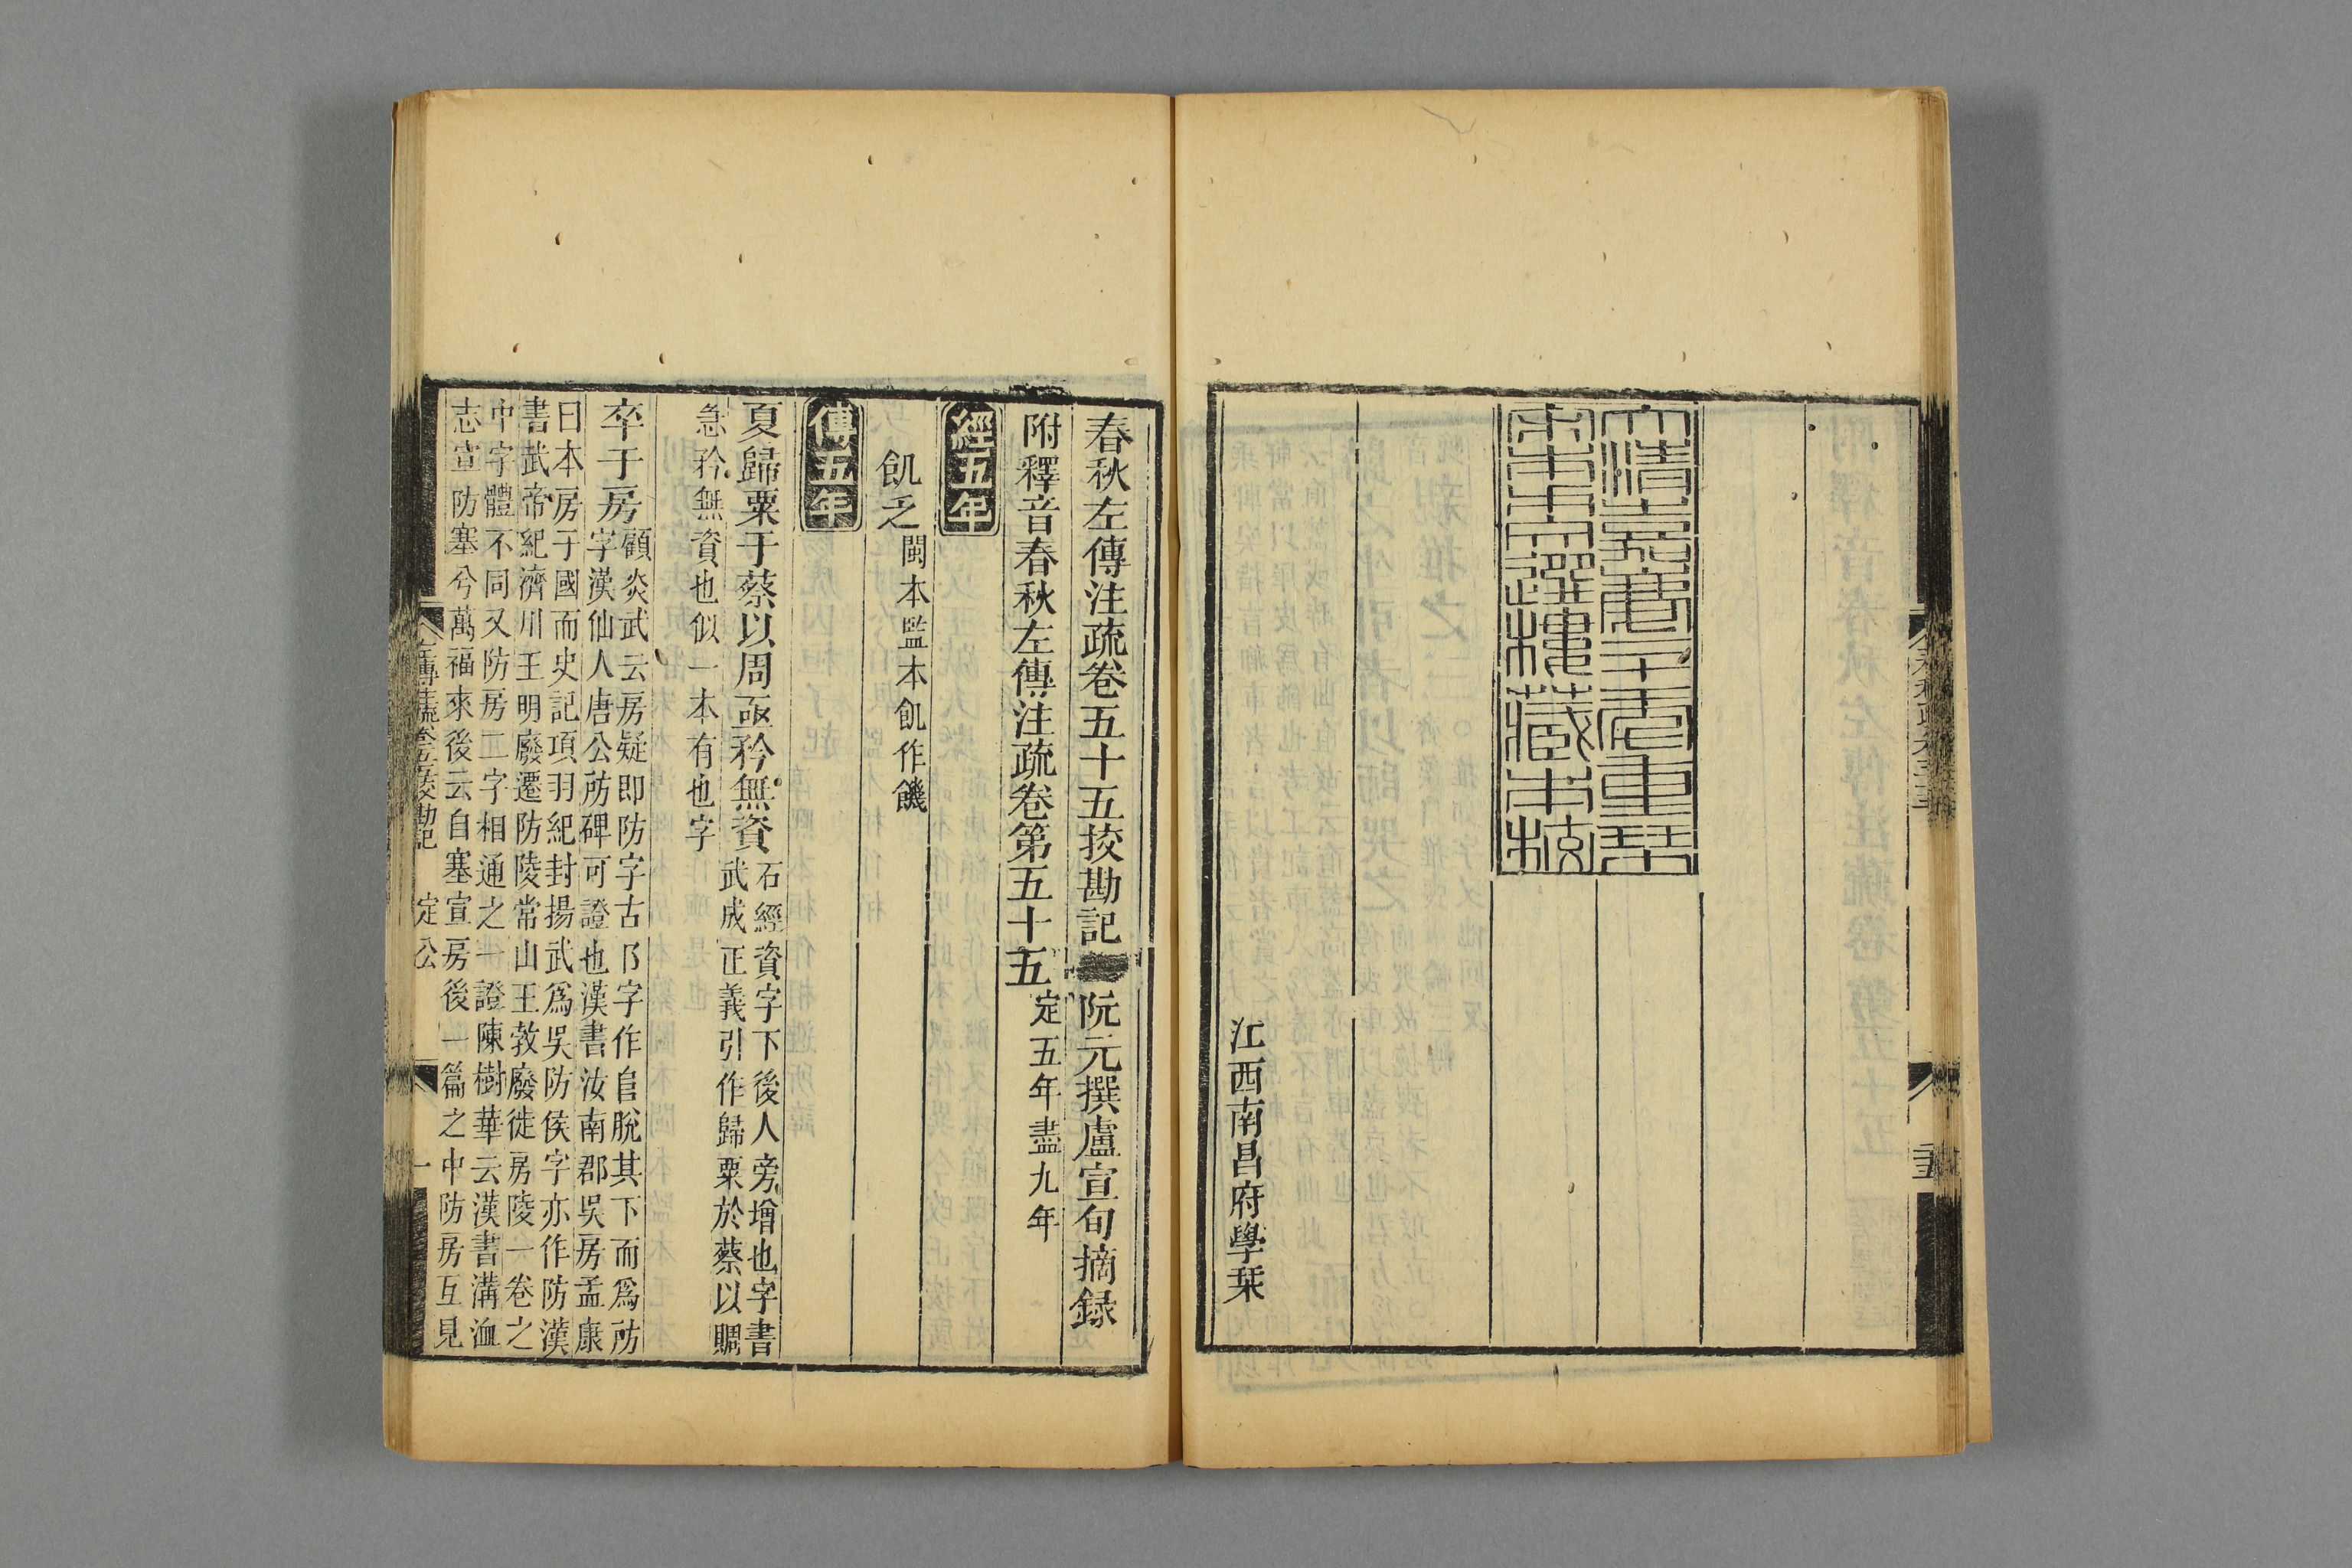 大清嘉慶二十年重栞
宋本十三經注疏附挍勘記
江西南昌府學栞
春秋左傳注疏卷五十五挍勘記 阮元撰盧宣旬摘録
附釋音春秋左傳注疏卷第五十五 定五年盡九年
經五年
飢乏 閩本監本飢作饑
傳五年
夏歸粟于蔡以周亟矜無資 石經資字下後人旁增也字書
武成正義引作歸粟於蔡以賙
急矜無資也似一本有也字
卒于房 顧炎武云房疑即防字古阝字作𨸏脫其下而爲𨸏
字漢仙人唐公防碑可證也漢書汝南郡吳房孟康
曰本房子國而史記項羽紀封揚武爲吳防侯字亦作防漢
書武帝紀濟川王明廢遷防陵常山王𣪠廢徙房陵一卷之
中字體不同又防房二字相通之一證陳樹華云漢書溝洫
志宣防塞兮萬福來後云自塞宣房後一篇之中防房互見
定公
一